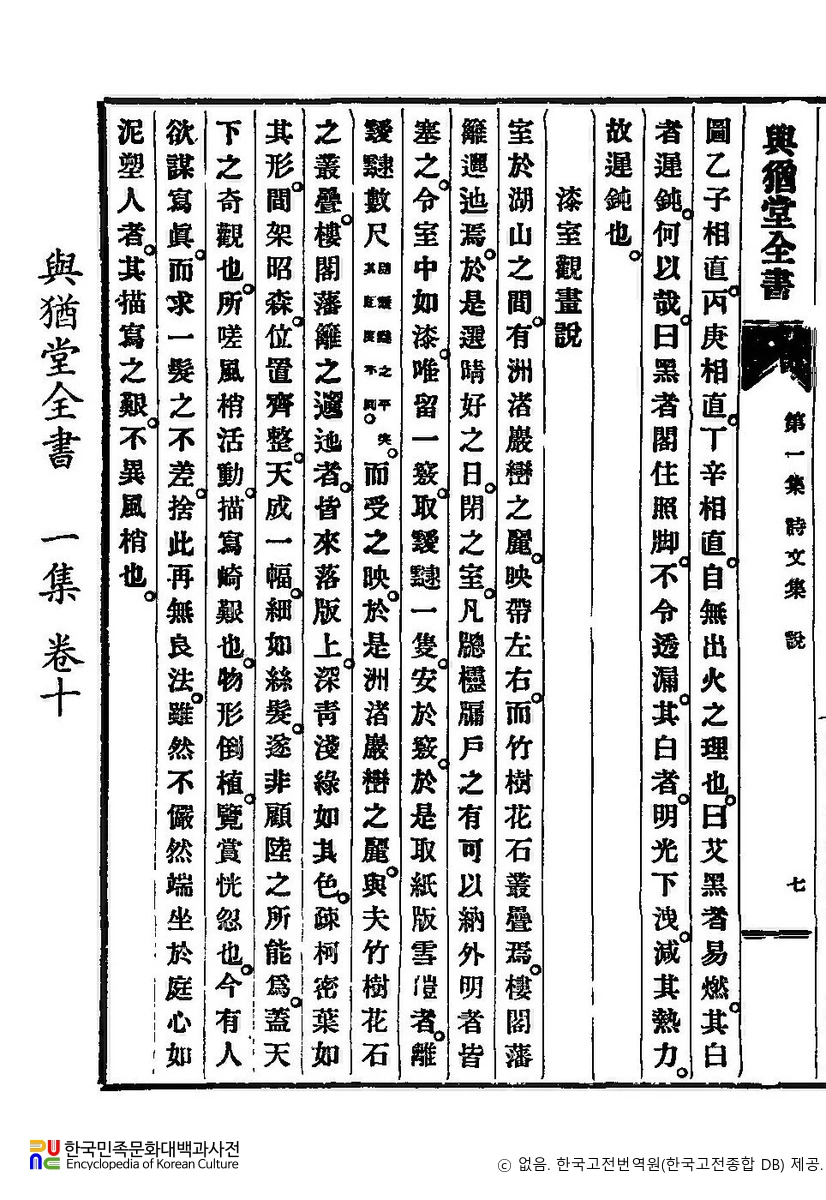 與猶堂全書 第一集 詩文集 說 七
圖乙子相直。丙庚相直。丁辛相直。自無出火之理也。曰艾黑者易燃。其白
者遲鈍。何以哉。曰黑者閣住照脚。不令透漏。其白者。明光下洩。減其熱力。
故遲鈍也。
漆室觀畫說
室於湖山之間。有洲渚巖巒之麗。映帶左右。而竹樹花石叢疊焉。樓閣藩
籬邐迆焉。於是選晴好之日。閉之室。凡牕櫺牖戶之有可以納外明者皆
塞之。令室中如漆。唯留一竅。取靉靆一隻。安於竅。於是取紙版雪凒者。離
靉靆數尺 隨靉靆之平突。其距度不同。 而受之映。於是洲渚巖巒之麗。與夫竹樹花石
之叢疊。樓閣藩籬之邐迆者。皆來落版上。深靑淺綠如其色。疎柯密葉如
其形。間架昭森。位置齊整。天成一幅。細如絲髮。遂非顧陸之所能爲。蓋天
下之奇觀也。所嗟風梢活動。描寫崎艱也。物形倒植。覽賞恍忽也。今有人
欲謀寫眞。而求一髮之不差。捨此再無良法。雖然不儼然端坐於庭心如
泥塑人者。其描寫之艱。不異風梢也。
與猶堂全書 一集 卷十
한국민족문화대백과사전
Encyclopedia of Korean Culture
ⓒ 없음. 한국고전번역원(한국고전종합 DB) 제공.